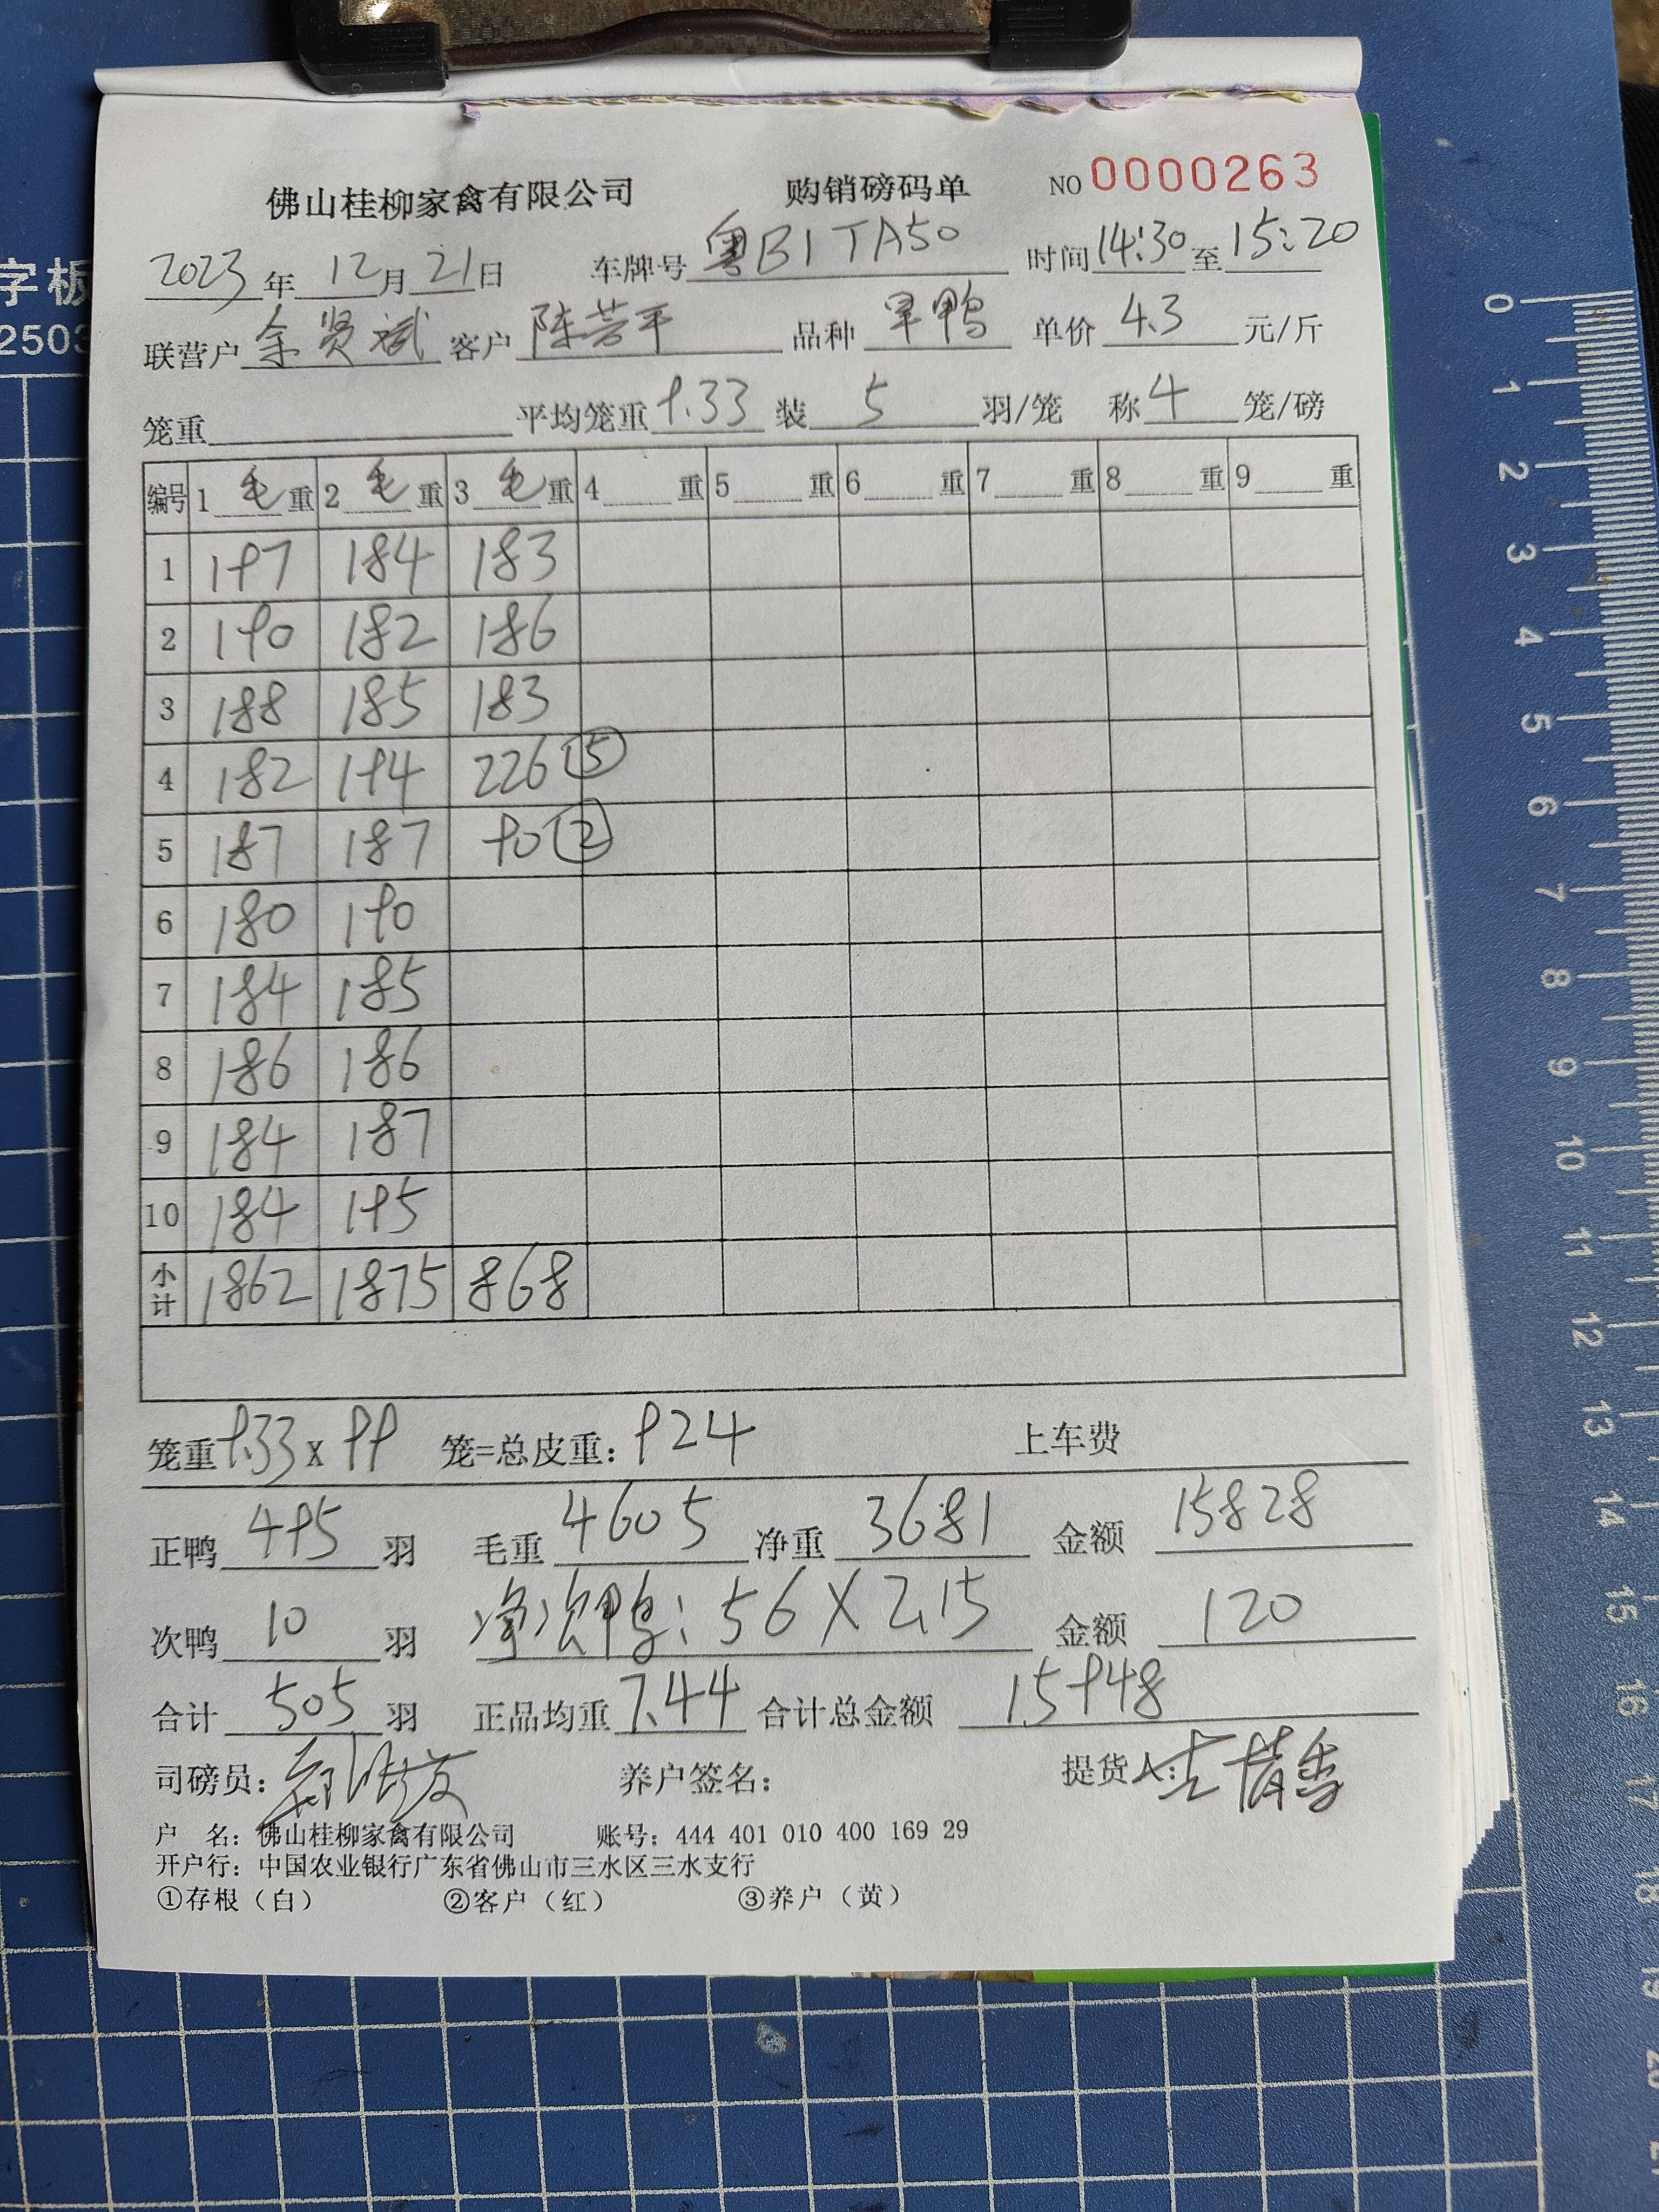 字板
2503
佛山桂柳家禽有限公司 购销磅码单 NO 0000263
2023年12月21日 车牌号 粤B1TA50 时间14:30至15:20
联营户 余贤斌 客户 陈芳平 品种 旱鸭 单价 4.3 元/斤
笼重 平均笼重 9.33 装 5 羽/笼 称 4 笼/磅
编号 1 毛重 2 毛重 3 毛重 4 重 5 重 6 重 7 重 8 重 9 重
1 197 184 183
2 190 182 186
3 188 185 183
4 182 194 226 ⑤
5 187 187 90 ②
6 180 190
7 184 185
8 186 186
9 184 187
10 184 195
小计 1862 1875 868
笼重 9.33 x 99 笼=总皮重: 924 上车费
正鸭 495 羽 毛重 4605 净重 3681 金额 15828
次鸭 10 羽 净次鸭: 56 X 2.15 金额 120
合计 505 羽 正品均重 7.44 合计总金额 15948
司磅员: 养户签名: 提货人:
户 名: 佛山桂柳家禽有限公司 账号: 444 401 010 400 169 29
开户行: 中国农业银行广东省佛山市三水区三水支行
①存根（白） ②客户（红） ③养户（黄）
0
1
2
3
4
5
6
7
8
9
10
11
12
13
14
15
16
17
18
19